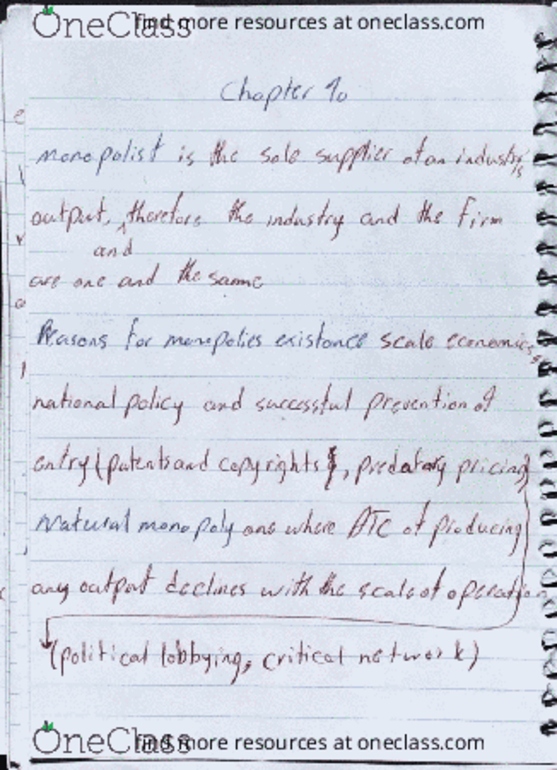 OneClass find more resources at oneclass.com
Chapter 10
monopolist is the sole supplier of an industry's
output, therefore the industry and the firm
and
are one and the same
Reasons for monopolies existance scale economies,
national policy and successful prevention of
entry (patents and copyrights, predatory pricing)
Natural monopoly one where ATC of producing
any output declines with the scale of operation
(political lobbying, critical network)
OneClass find more resources at oneclass.com